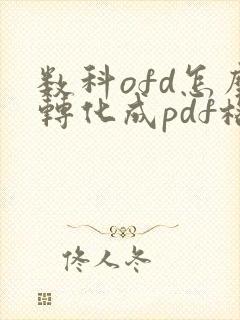 数科ofd怎
轉化成pdf
佟人冬